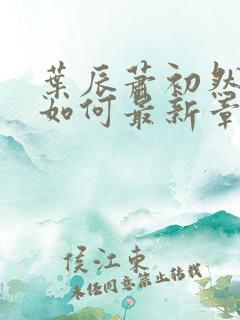 葉辰蕭初然
如何最新章
侯江東
未经同意禁止转载